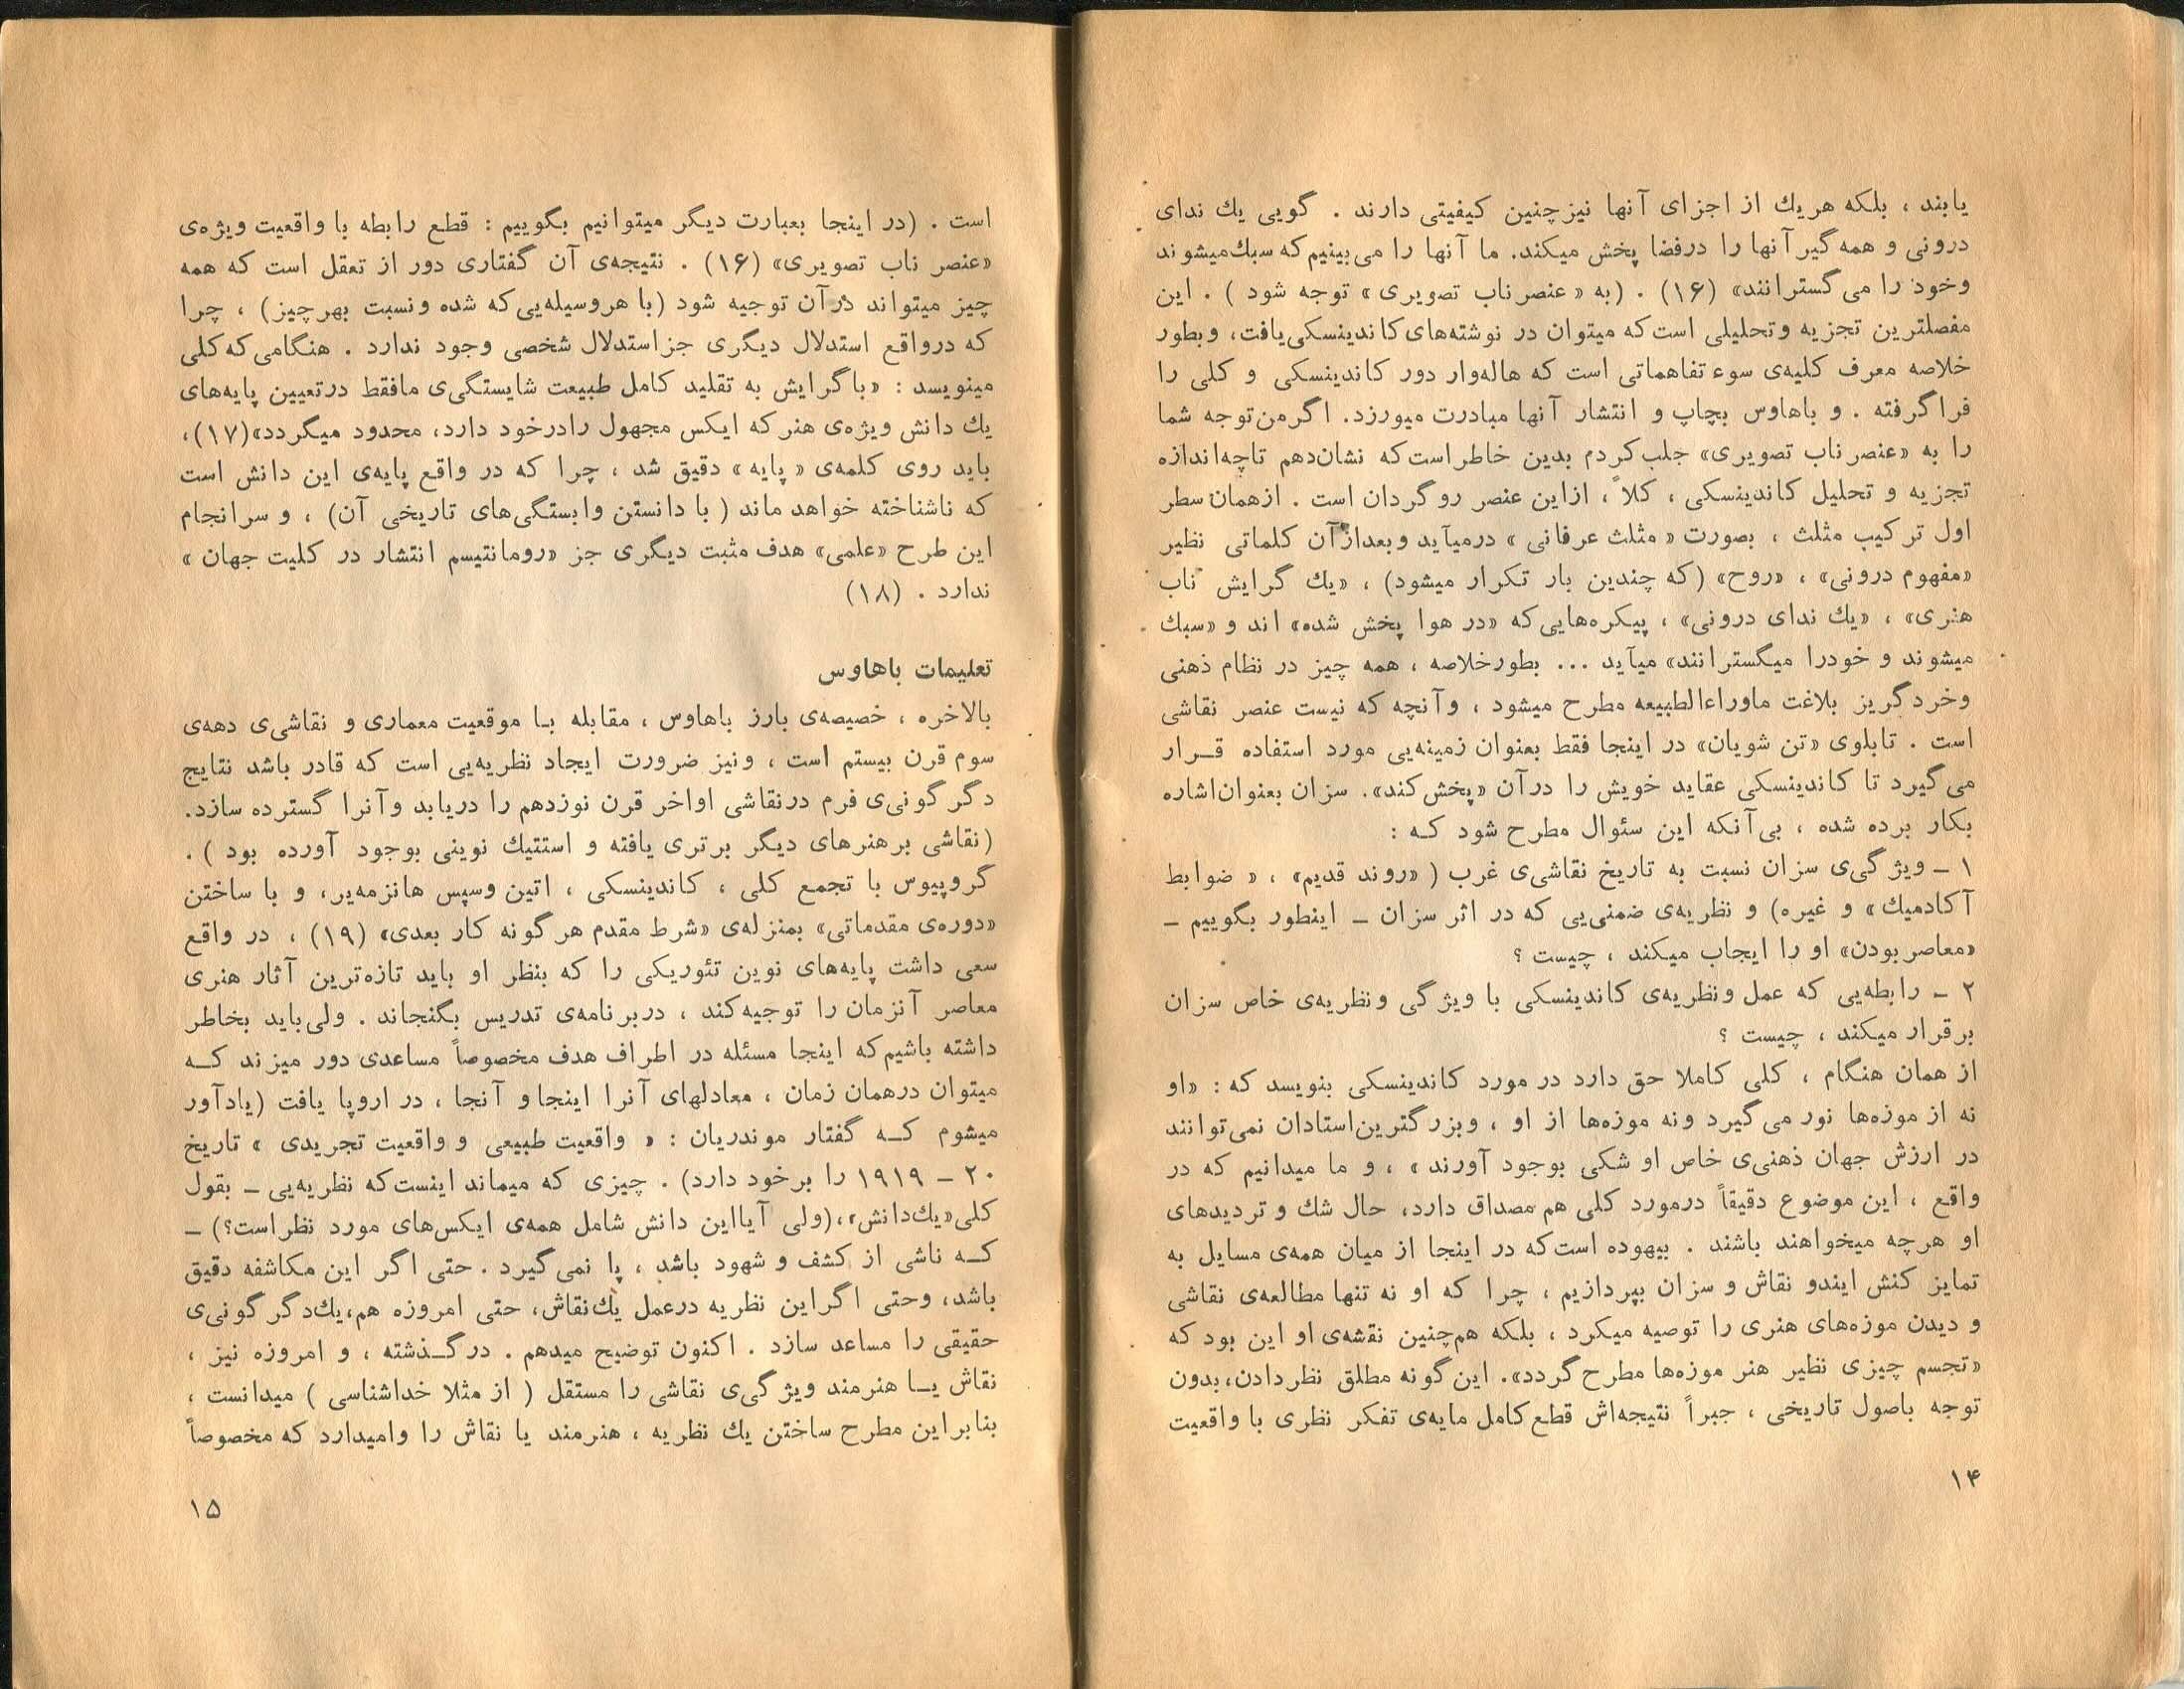 یابند ، بلکه هریك از اجزای آنها نیزچنین کیفیتی دارند . گویی یك ندای
درونی و همه گیر آنها را درفضا پخش میکند. ما آنها را می‌بینیم که سبك میشوند
وخود را می گسترانند» (۱۶) . (به «عنصرناب تصویری» توجه شود ) . این
مفصلترین تجزیه وتحلیلی است که میتوان در نوشته‌های کاندینسکی یافت، وبطور
خلاصه معرف کلیه‌ی سوء تفاهماتی است که هاله‌وار دور کاندینسکی و کلی را
فراگرفته . و باهاوس بچاپ و انتشار آنها مبادرت میورزد. اگرمن توجه شما
را به «عنصرناب تصویری» جلب کردم بدین خاطراست که نشان‌دهم تاچه‌اندازه
تجزیه و تحلیل کاندینسکی ، کلاً ، ازاین عنصر روگردان است . ازهمان سطر
اول ترکیب مثلث ، بصورت «مثلث عرفانی» درمیآید وبعدازآن کلماتی نظیر
«مفهوم درونی» ، «روح» (که چندین بار تکرار میشود) ، «یك گرایش ناب
هنری» ، «یك ندای درونی» ، پیکره‌هایی که «در هوا پخش شده» اند و «سبك
میشوند و خودرا میگسترانند» میآید ... بطورخلاصه ، همه چیز در نظام ذهنی
وخردگریز بلاغت ماوراءالطبیعه مطرح میشود ، وآنچه که نیست عنصر نقاشی
است . تابلوی «تن شویان» در اینجا فقط بعنوان زمینه‌یی مورد استفاده قرار
می گیرد تا کاندینسکی عقاید خویش را درآن «پخش کند». سزان بعنوان‌اشاره
بکار برده شده ، بی‌آنکه این سئوال مطرح شود که :
۱ ـ ویژگی‌ی سزان نسبت به تاریخ نقاشی‌ی غرب ( «روند قدیم» ، « ضوابط
آکادمیك» و غیره) و نظریه‌ی ضمنی‌یی که در اثر سزان ـ اینطور بگوییم ـ
«معاصربودن» او را ایجاب میکند ، چیست ؟
۲ ـ رابطه‌یی که عمل ونظریه‌ی کاندینسکی با ویژگی ونظریه‌ی خاص سزان
برقرار میکند ، چیست ؟
از همان هنگام ، کلی کاملا حق دارد در مورد کاندینسکی بنویسد که : «او
نه از موزه‌ها نور می گیرد ونه موزه‌ها از او ، وبزرگترین‌استادان نمی‌توانند
در ارزش جهان ذهنی‌ی خاص او شکی بوجود آورند» ، و ما میدانیم که در
واقع ، این موضوع دقیقاً درمورد کلی هم مصداق دارد، حال شك و تردیدهای
او هرچه میخواهند باشند . بیهوده است‌که در اینجا از میان همه‌ی مسایل به
تمایز کنش ایندو نقاش و سزان بپردازیم ، چرا که او نه تنها مطالعه‌ی نقاشی
و دیدن موزه‌های هنری را توصیه میکرد ، بلکه هم‌چنین نقشه‌ی او این بود که
«تجسم چیزی نظیر هنر موزه‌ها مطرح گردد». این گونه مطلق نظردادن، بدون
توجه باصول تاریخی ، جبراً نتیجه‌اش قطع کامل مایه‌ی تفکر نظری با واقعیت
۱۴
است . (در اینجا بعبارت دیگر میتوانیم بگوییم : قطع رابطه با واقعیت ویژه‌ی
«عنصر ناب تصویری» (۱۶) . نتیجه‌ی آن گفتاری دور از تعقل است که همه
چیز میتواند درآن توجیه شود (با هروسیله‌یی که شده ونسبت بهرچیز) ، چرا
که درواقع استدلال دیگری جزاستدلال شخصی وجود ندارد . هنگامی که کلی
مینویسد : «باگرایش به تقلید کامل طبیعت شایستگی‌ی مافقط درتعیین پایه‌های
یك دانش ویژه‌ی هنرکه ایکس مجهول رادرخود دارد، محدود میگردد»(۱۷)،
باید روی کلمه‌ی «پایه» دقیق شد ، چرا که در واقع پایه‌ی این دانش است
که ناشناخته خواهد ماند ( با دانستن وابستگی‌های تاریخی آن) ، و سرانجام
این طرح «علمی» هدف مثبت دیگری جز «رومانتیسم انتشار در کلیت جهان »
ندارد . (۱۸)
تعلیمات باهاوس
بالاخره ، خصیصه‌ی بارز باهاوس ، مقابله با موقعیت معماری و نقاشی‌ی دهه‌ی
سوم قرن بیستم است ، ونیز ضرورت ایجاد نظریه‌یی است که قادر باشد نتایج
دگرگونی‌ی فرم درنقاشی اواخر قرن نوزدهم را دریابد وآنرا گسترده سازد.
(نقاشی برهنرهای دیگر برتری یافته و استتیك نوینی بوجود آورده بود ) .
گروپیوس با تجمع کلی ، کاندینسکی ، اتین وسپس هانزمه‌یر، و با ساختن
«دوره‌ی مقدماتی» بمنزله‌ی «شرط مقدم هرگونه کار بعدی» (۱۹) ، در واقع
سعی داشت پایه‌های نوین تئوریکی را که بنظر او باید تازه‌ترین آثار هنری
معاصر آنزمان را توجیه‌کند ، دربرنامه‌ی تدریس بگنجاند . ولی‌باید بخاطر
داشته باشیم‌که اینجا مسئله در اطراف هدف مخصوصاً مساعدی دور میزند که
میتوان درهمان زمان ، معادلهای آنرا اینجاو آنجا ، در اروپا یافت (یادآور
میشوم که گفتار موندریان : « واقعیت طبیعی و واقعیت تجریدی » تاریخ
۲۰ ـ ۱۹۱۹ را برخود دارد) . چیزی که میماند اینست‌که نظریه‌یی ـ بقول
کلی«یك‌دانش»،(ولی آیااین دانش شامل همه‌ی ایکس‌های مورد نظراست؟) ـ
که ناشی از کشف و شهود باشد ، پا نمی گیرد . حتی اگر این مکاشفه دقیق
باشد، وحتی اگراین نظریه درعمل یك‌نقاش، حتی امروزه هم،یك‌دگرگونی‌ی
حقیقی را مساعد سازد . اکنون توضیح میدهم . درگذشته ، و امروزه نیز ،
نقاش یا هنرمند ویژگی‌ی نقاشی را مستقل ( از مثلا خداشناسی ) میدانست ،
بنابراین مطرح ساختن یك نظریه ، هنرمند یا نقاش را وامیدارد که مخصوصاً
۱۵